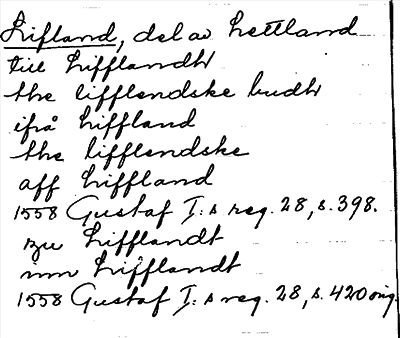 Lifland, del av Lettland
till Lifflandh
the lifflendske budh
ifrå Liffland
the lifflendske
aff Liffland
1558 Gustaf I:s reg. 28, s. 398.
zu Lifflandt
inn Lifflandt
1558 Gustaf I:s reg. 28, s. 420 orig.